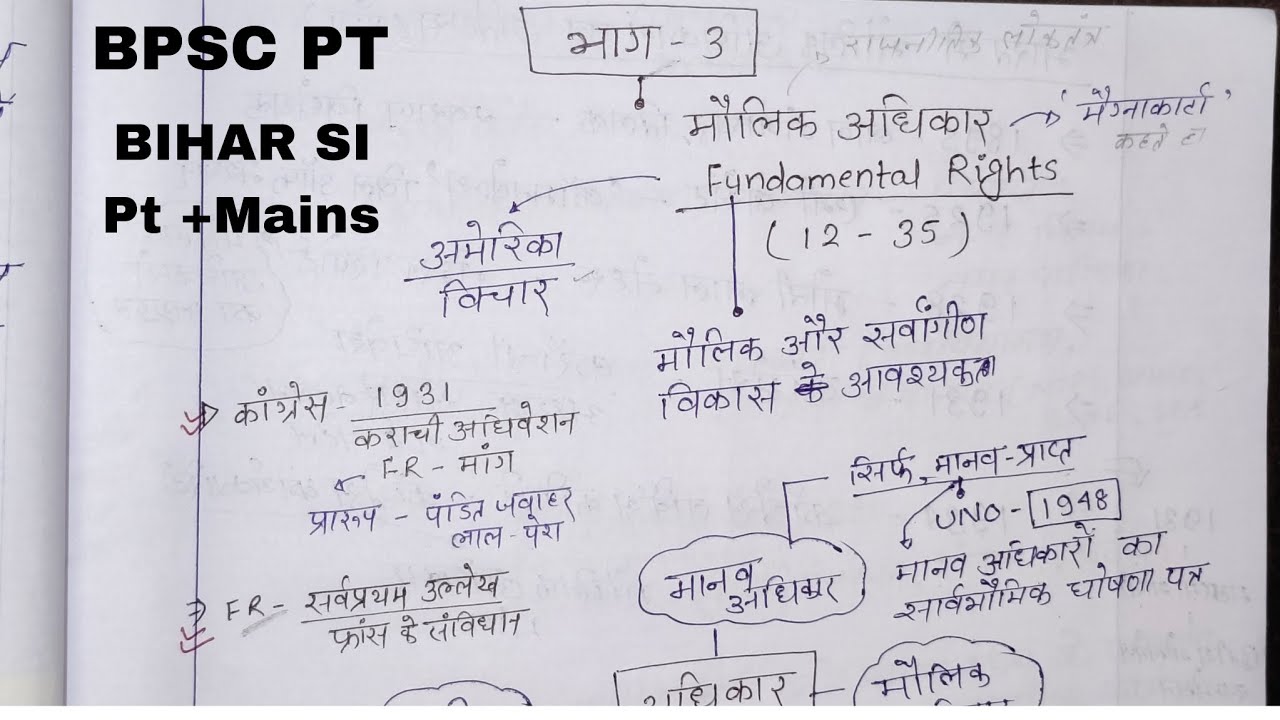 BPSC PT
BIHAR SI
Pt +Mains
भाग - 3
राजनीतिक लोकतंत्र
मौलिक अधिकार → 'मैग्नाकार्टा'
कहते हैं
Fundamental Rights
(12 - 35)
अमेरिका
विचार
मौलिक और सर्वांगीण
विकास के आवश्यकता
कांग्रेस - 1931
कराची अधिवेशन
FR - मांग
प्रारूप - पंडित जवाहर
लाल - पेश
सिर्फ मानव-प्राप्त
UNO - 1948
मानव अधिकारों का
सार्वभौमिक घोषणा पत्र
मानव
अधिकार
FR - सर्वप्रथम उल्लेख
फ्रांस के संविधान
अधिकार
मौलिक